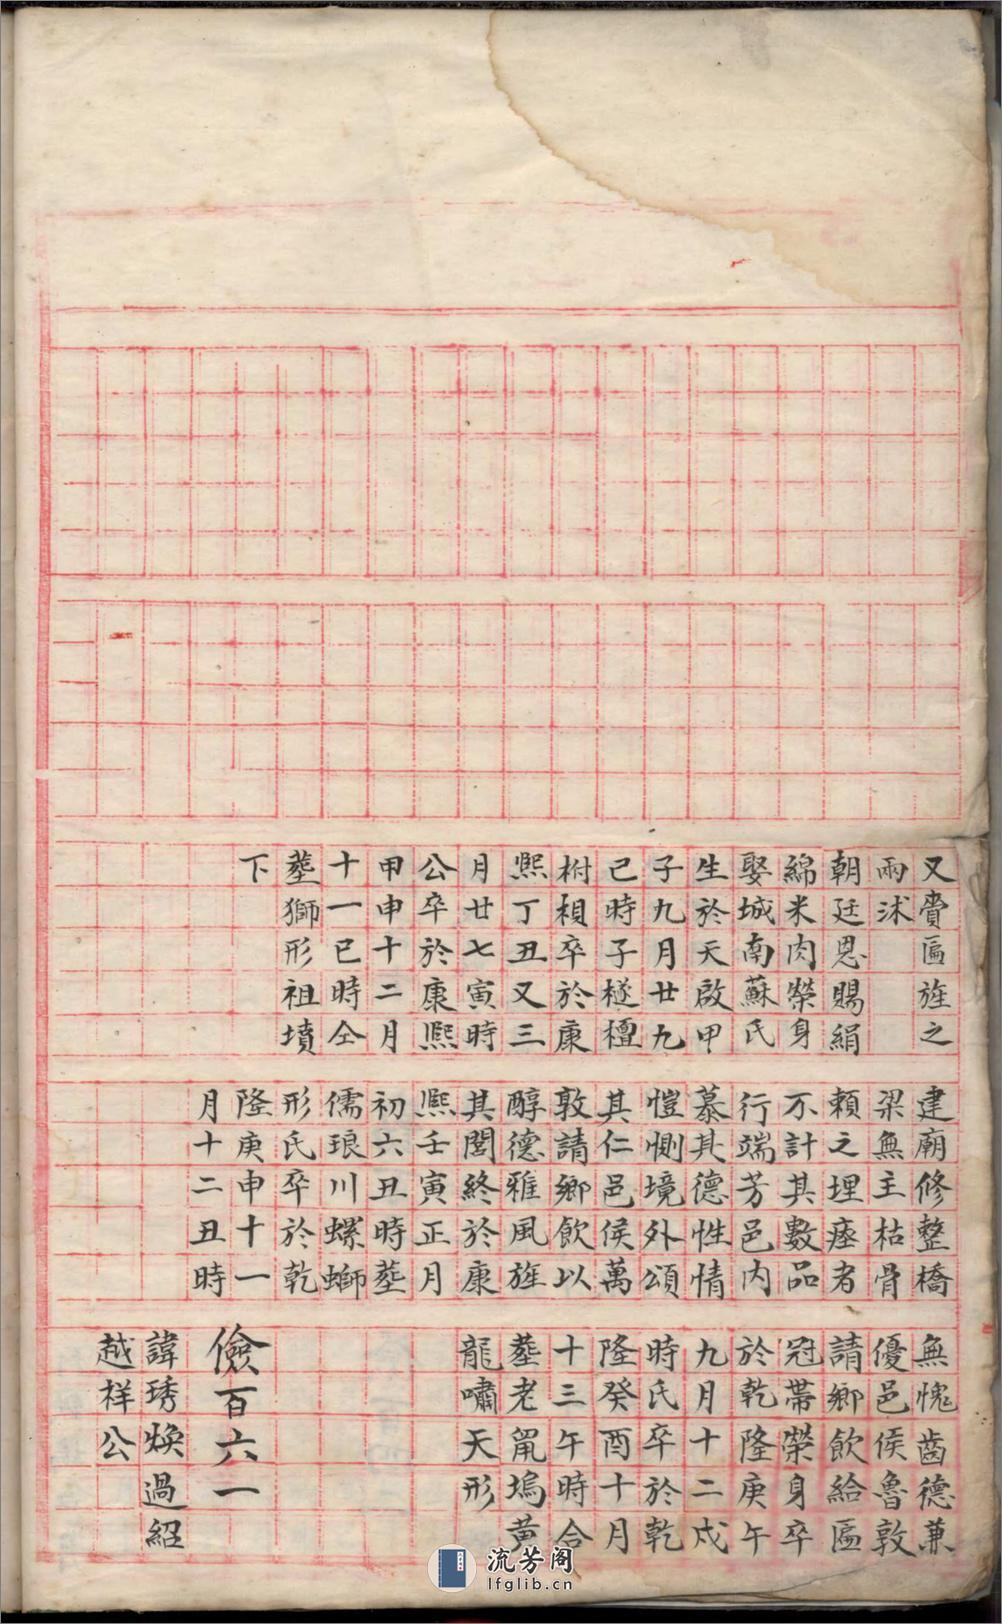 又賚匾旌之
兩沭
朝廷恩賜絹
綿米肉榮身
娶城南蘇氏
生於天啟甲
子九月廿九
己時子檖檀
柎相卒於康
熙丁丑又三
月廿七寅時
公卒於康熙
甲申十二月
十一巳時仝
塟獅形祖墳
下
建廟修整橋
梁無主枯骨
頼之埋瘞者
不計其數品
行端芳邑内
慕其德性情
愷惻境外頌
其仁邑侯萬
敦請鄉飲以
醇德雅風旌
其閭終於康
熙壬寅正月
初六丑時塟
儒琅川螺螄
形氏卒於乾
隆庚申十一
月十二丑時
無愧齒德兼
優邑侯魯敦
請鄉飲給匾
冠帶榮身卒
於乾隆庚午
九月十二戌
時氏卒於乾
隆癸酉十月
十三午時合
塟老鼠塢黄
龍嘯天形
儉百六一
諱琇煥過紹
越祥公
流芳阁
lfglib.cn